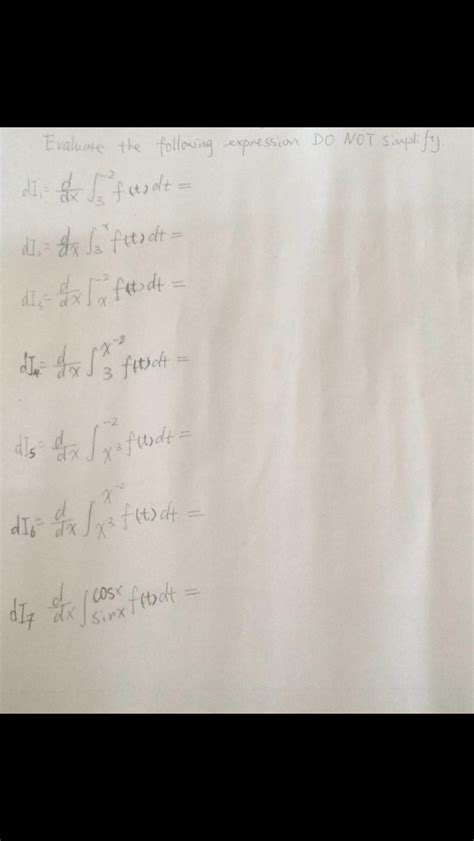 Evaluate the following expression DO NOT simplify.
dI₁ = d/dx ∫₃⁻² f(t)dt =
dI₂ = d/dx ∫₃ˣ f(t)dt =
dI₃ = d/dx ∫ₓ⁻² f(t)dt =
dI₄ = d/dx ∫₃^(x⁻²) f(t)dt =
dI₅ = d/dx ∫_(x³)^(-2) f(t)dt =
dI₆ = d/dx ∫_(x³)^(x⁻²) f(t)dt =
dI₇ d/dx ∫_(sinx)^(cosx) f(t)dt =